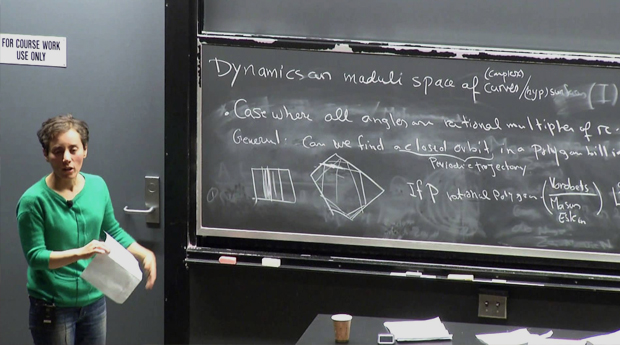 FOR COURSE WORK
USE ONLY
Dynamics on moduli space of (complex) curves/(hyp) surfaces (I)
• Case where all angles are rational multiples of π.
General. Can we find a closed orbit in a polygon
Periodic trajectory
If P rational polygon
Masur